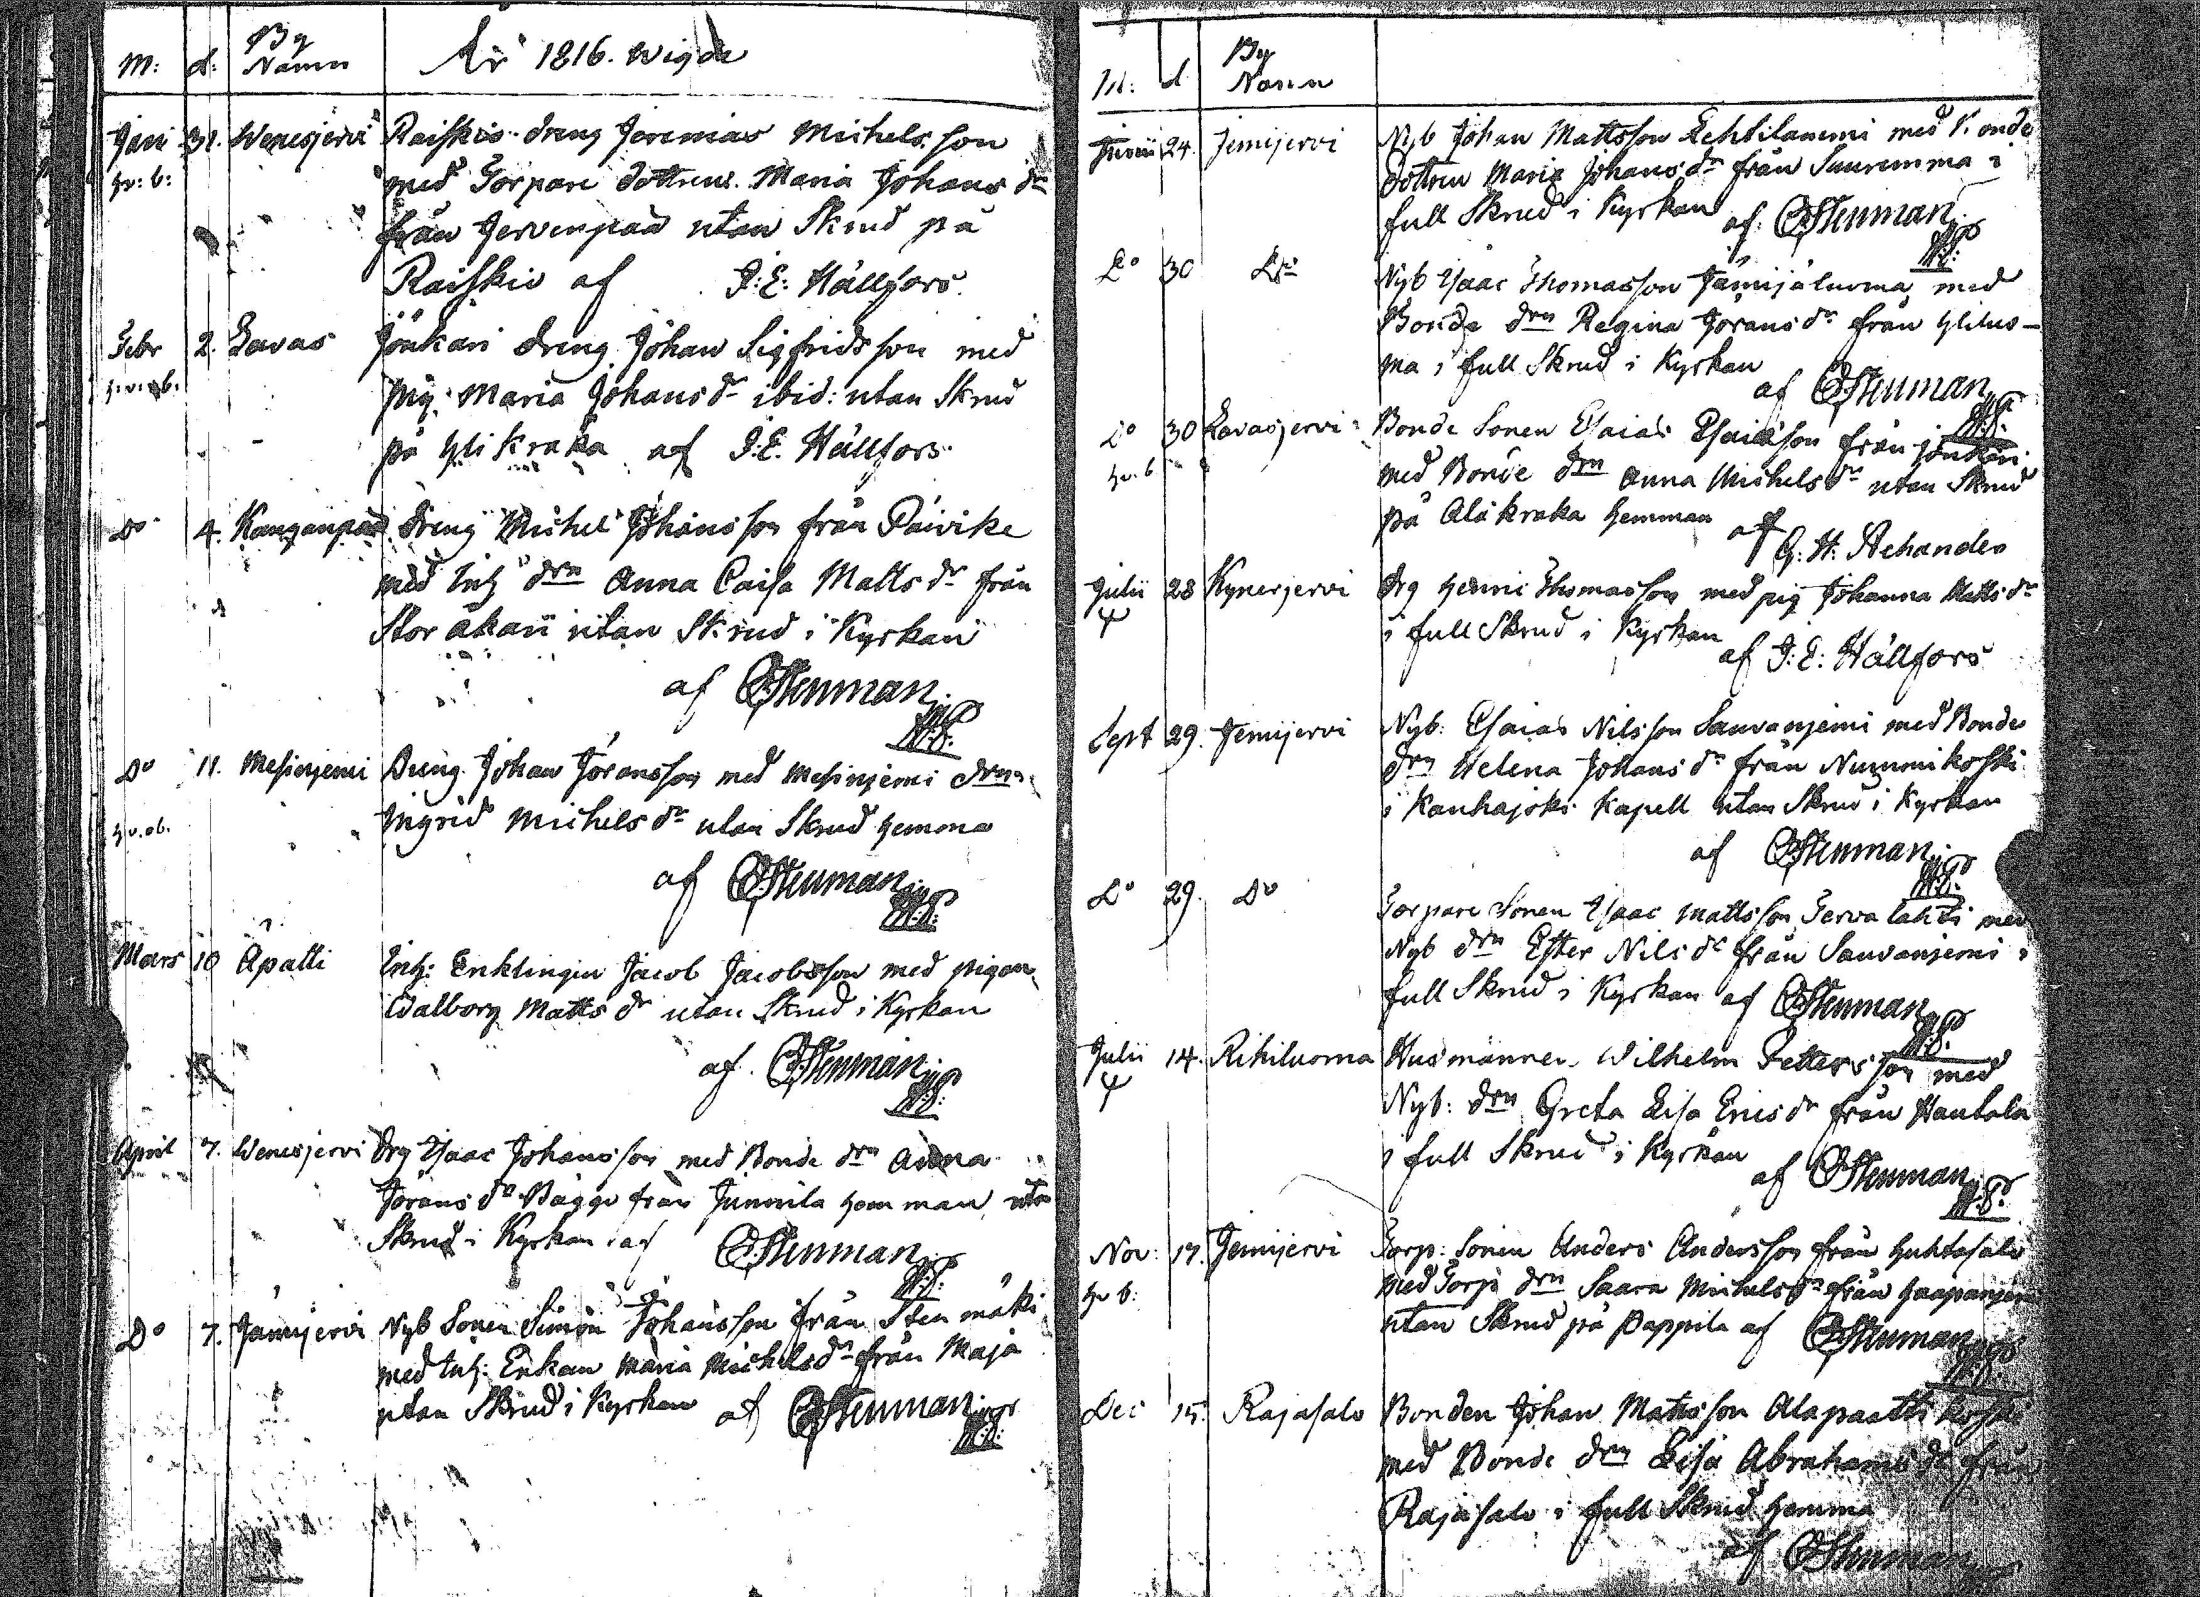 M: d: By Namn År 1816. Wigde
Jani 31. Wenesjervi Raiskio dreng Jeremias Michelsson
hv: b: med Torpare dottren Maria Johans dr
från Jervenpää utan Skrud på
Raiskio af J: E: Hällfors.
Febr 2. Lavas Jönkäri dreng Johan Sigfridsson med
pig. Maria Johans dr ibid: utan Skrud
på Yli kraka af J. E. Hällfors.
Do 4. Kanganpää dreng Michel Johansson från Päivike
med Inh drn Anna Caisa Matts dr från
Storåkari utan Skrud i Kyrkan
af Stenman
Do 11. Mesinjemi Dreng Johan Jöransson med Mesinjemi drn
hv. ab. Ingrid Michels dr utan Skrud hemma
af Stenman
Mars 10 Apatti Inh: Enklingen Jacob Jacobsson med pigan
Walborg Matts dr utan Skrud i Kyrkan
af Stenman
April 7. Wenesjervi Drg Isaac Johansson med Bonde drn Anna
Jörans dr Bagge från Junnila hemman utan
Skrud i Kyrkan af Stenman
Do 7. Jämijervi Nyb Sonen Simon Johansson från Sten mäki
med Inh: Enkan Maria Michels dr från Maja
utan Skrud i Kyrkan af Stenman
M: d By Namn
Junii 24. Jemijervi Nyb Johan Mattsson Lehtilanemi med Bonde
dottren Maria Johans dr från Suuremma i
full Skrud i Kyrkan af Stenman
Do 30 Do Nyb Isaac Thomasson Jämijäluoma med
Bonde drn Regina Jörans dr från Ylilus-
ma i full Skrud i Kyrkan
af Stenman
Do 30 Lavasjervi Bonde Sonen Esaias Esaiasson från Jönkäri
hv. b med Bonde drn Anna Michels dr utan Skrud
på Ala kraka hemman af
G: H: Achander
Julii 28 Kynesjervi Drg Henric Thomasson med pig Johanna Matts dr
i full Skrud i Kyrkan
af J: E: Hällfors
Sept 29. Jemijervi Nyb: Esaias Nilsson Sauvanjemi med Bonde
drn Helena Johans dr från Nummikoski
i Kauhajoki Kapell utan Skrud i Kyrkan
af Stenman
Do 29. Do Torpare Sonen Isaac Mattsson Tervalahti med
Nyb drn Ester Nils dr från Sauvanjemi i
full Skrud i Kyrkan af Stenman
Julii 14. Rihiluoma Husmannen Wilhelm Pettersson med
Nyb: drn Greta Lisa Erics dr från Hautala
i full Skrud i Kyrkan
af Stenman
Nov: 17. Jemijervi Torp: Sonen Anders Andersson från Huhtasalo
hv b: med Torp drn Saara Michels dr från Haapanjemi
utan Skrud på Pappila af Stenman
Dec 15. Rajasalo Bonden Johan Mattsson Alapaattikoski
med Bonde drn Lisa Abrahams dr från
Rajasalo i full Skrud hemma
af Stenman